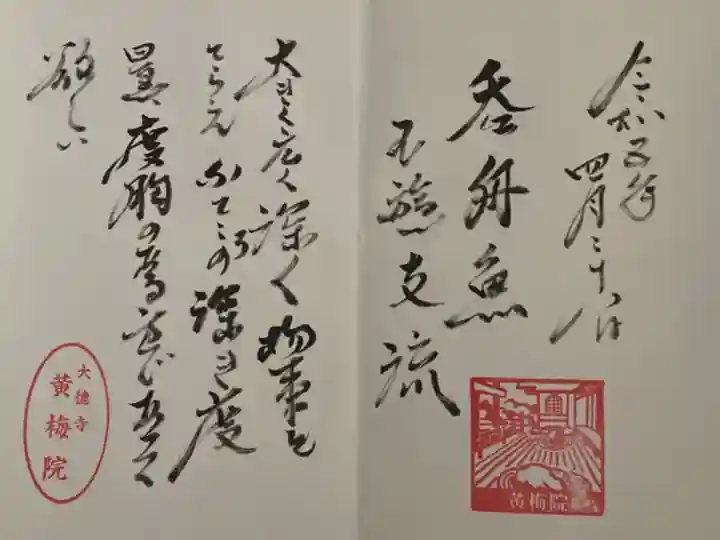 令和五年
四月二十八日
呑舟魚
不遊支流
黄梅院
大きく広く深く物事を
とらえ こころの深き度
量、度胸の
欲しい
大徳寺
黄梅院